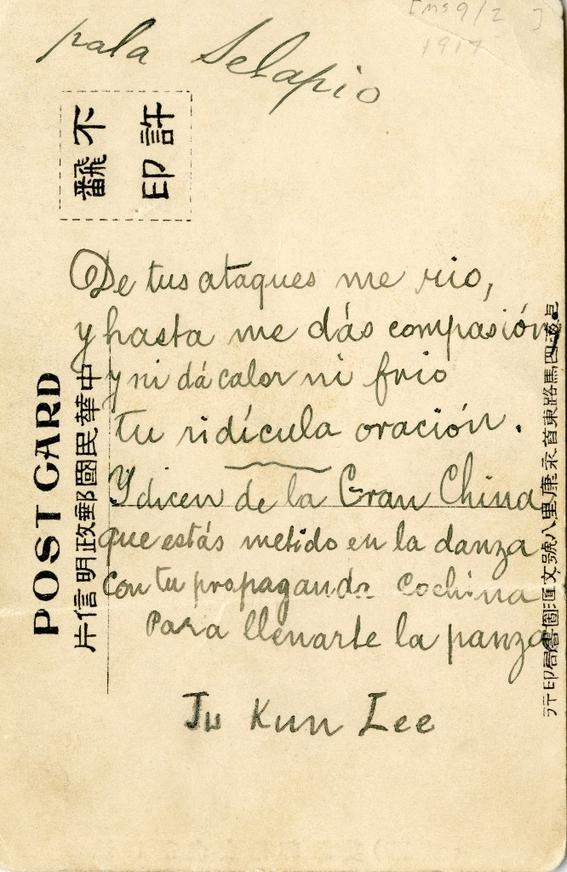 [Ms 9/2 ]
1917
pala Selapio
不許
飜印
De tus ataques me rio,
y hasta me dás compasión,
y ni dá calor ni frio
tu ridícula oración.
Y dicen de la Gran China
que estás metido en la danza
con tu propaganda cochina
Para llenarte la panza
Ju Kun Lee
POST CARD
中華民國郵政明信片
四馬路東首永康里八號文匯圖書局印行